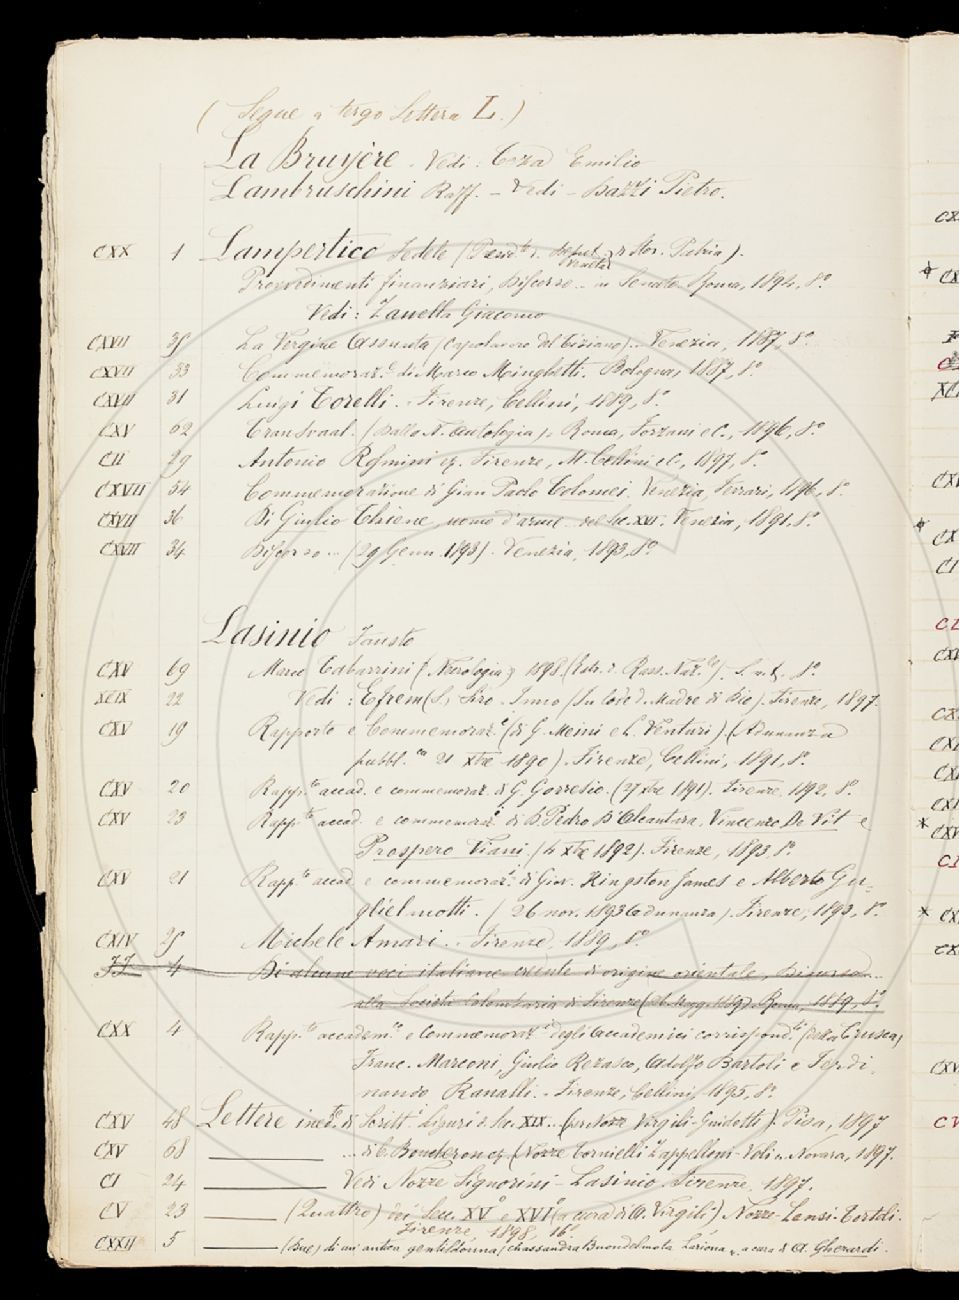 ( Segue a tergo Lettera L. )
La Bruyère. Vedi: Teza Emilio
Lambruschini Raff. - Vedi - Bazzi Pietro.
CXX 1 Lampertico Fedele (Presid.te d. Deput. Veneta di Stor. Patria).
Provvedimenti finanziari, Discorso... in Senato. Roma, 1894, 8.º
Vedi: Zanella Giacomo
CXVII 35 La Vergine Assunta (capolavoro del Tiziano). Venezia, 1887, 8.º
CXVII 33 Commemoraz.e di Marco Minghetti. Bologna, 1887, 8.º
CXVII 31 Luigi Torelli. Firenze, Cellini, 1889, 8.º
CXV 62 Transvaal. (Dalla N. Antologia). Roma, Forzani e C., 1896, 8.º
CII 29 Antonio Rosmini Firenze, M. Cellini e C., 1897, 8.º
CXVII 54 Commemorazione di Gian Paolo Tolomei. Venezia, Ferrari, 1896, 8.º
CXVII 36 Di Giulio Thiene, uomo d'arme del Sec. XVI. Venezia, 1891, 8.º
CXVIII 34 Discorso... (29 Genn. 1893). Venezia, 1893, 8.º
Lasinio Fausto
CXV 69 Marco Tabarrini (Necrologia) 1898. (Estr. d. Rass. Naz.le). S. n. t. 8.º
XCIX 22 Vedi: Efrem (S.) Siro. Inno (In lode d. Madre di Dio). Firenze, 1897.
CXV 19 Rapporto e Commemoraz.e (di G. Meini e L. Venturi) (Adunanza
pubbl.ca 21 Xbre 1890). Firenze, Cellini, 1891, 8.º
CXV 20 Rapp.to accad. e commemoraz. di G. Gorresio. (27 Xbre 1891). Firenze, 1892, 8.º
CXV 23 Rapp.to accad. e commemoraz.e di D. Pedro D'Alcantara, Vincenzo De Vit e
Prospero Viani. (4 Xbre 1892). Firenze, 1893, 8.º
CXV 21 Rapp.to accad. e commemoraz.e di Giov. Kingston James e Alberto Gu-
glielmotti. (26 nov. 1893 adunanza). Firenze, 1893, 8.º
CXIV 25 Michele Amari. Firenze, 1889, 8.º
4 Di alcune voci italiane credute di origine orientale, Discorso...
alla Società Colombaria di Firenze Roma, 1889, 8.º
CXX 4 Rapp.to accadem.co e Commemoraz.e degli Accademici corrispond.ti (della Crusca)
Franc. Marconi, Giulio Rezasco, Adolfo Bartoli e Ferdi-
nando Ranalli. Firenze, Cellini, 1895, 8.º
CXV 48 Lettere ined.te di Scritt.i Liguri d. Sec. XIX... (per Nozze Virgili-Guidotti). Pisa, 1897
CXV 68 ... di C. Boucheron (Nozze Tornielli Zappelloni-Voli). Novara, 1897.
CI 24 Vedi Nozze Signorini-Lasinio. Firenze, 1897.
CV 23 (Quattro) dei Sec. XV e XVI (a cura di A. Virgili) Nozze-Lensi-Tortoli.
Firenze, 1898, 16º
CXXII 5 (Due) di un'antica gentildonna (Chassandra Buondelmonta a cura di A. Gherardi.